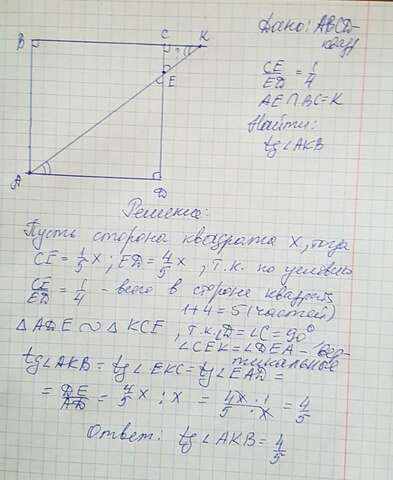 Дано: ABCD-
квадр
CE/ED = 1/4
AE∩BC=K
Найти:
tg∠AKB
B C K
E
A D
Решение:
Пусть сторона квадрата x, тогда
CE = 1/5 x; ED = 4/5 x, т.к. по условию
CE/ED = 1/4 - всего в стороне квадрата
1+4=5 (частей)
△ADE ∾ △KCE, т.к. ∠D=∠C=90°
∠CEK=∠DEA - вер-
тикальные
tg∠AKB = tg∠EKC = tg∠EAD =
= DE/AD = 4/5 x : x = 4x·1/5·x = 4/5
Ответ: tg∠AKB = 4/5